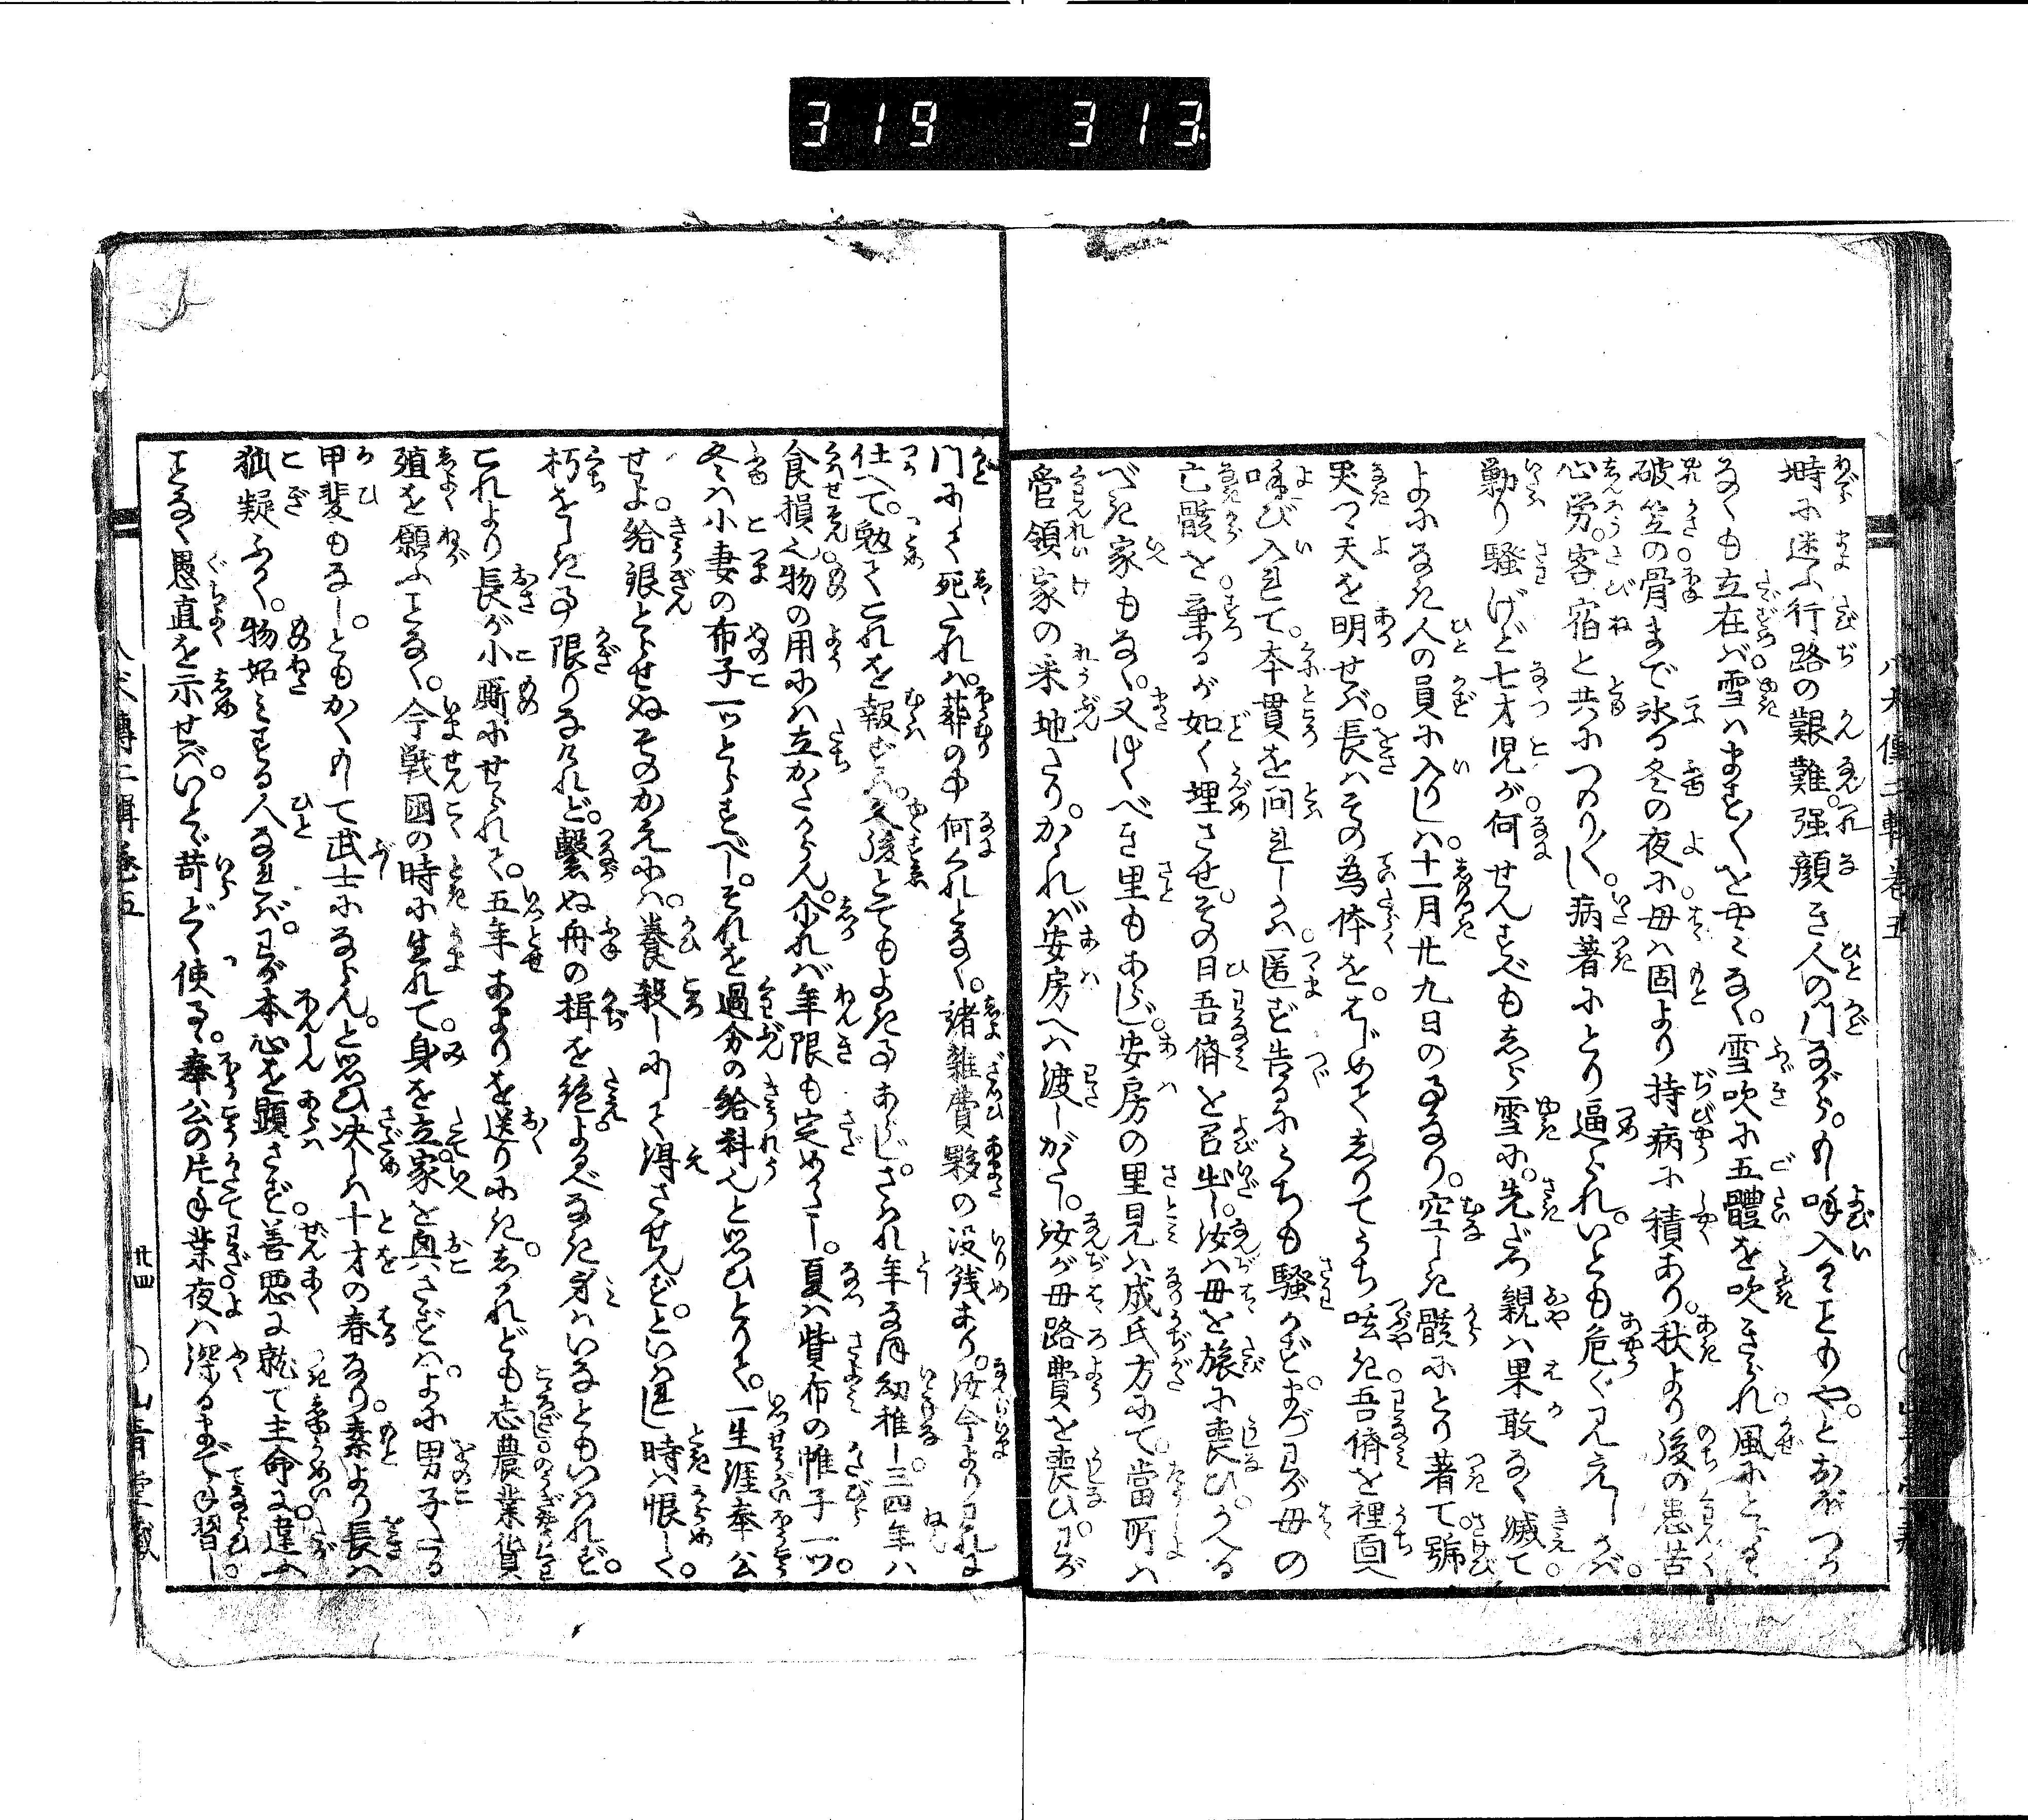 319 313
八犬傳二輯卷五
塒に迷ふ行路の艱難。强顔き人の門ながら。もし呼入るゝこともや。とおぼつか
なくも立在ば雪はます〳〵をやみなく。雪吹に五體を吹きられ風にとらるゝ
破笠の骨まで氷る冬の夜に母は固より持病に積あり。秋より後の患苦
心労。客宿と共につのり〳〵。病著にとり逼られ。いとも危ぐ見えしかば。
勦り騒げど七才児が何せんすべもしら雪に。先だつ親は果敢なく滅て
よになき人の員に入りしは。十一月廿九日の事なり。空しき骸にとり著て號
哭つゝ天を明せば。長はその為体を。はじめてしりてうち呟き。吾儕を裡面へ
呼び入れて。本貫を問れしかば。匿ず告るにうちも騒がず。まづわが母の
亡骸を。棄るが如く埋させ。その日吾儕を召出し。汝は母を旅に喪ひ。かへる
べき家もなく。又ゆくべき里もあらじ。安房の里見は成氏方にて。當所は
菅領家の釆地たり。かゝれば安房へは渡しがたし。汝が母路費を喪ひ。わが
門にて死たれば。葬の事何くれとなく。諸雜費夥の没錢あり。汝今よりわれに
仕へて。勉てこれを報ずべし。又後とてもよき事あらじ。されど年なほ幼稚し。三四年は
食損也。物の用には立がたからん。尒れば年限も定めがたし。夏は貲布の帷子一ッ。
冬は小妻の布子一ッとらすべし。それを過分の給料也と思ひとりて。一生涯奉公
せよ。給銀とらせぬそのかえには。養殺しにして得させんず。といはれし時は悵しく。
朽をしき事限りなけれど。繫ぬ舟の楫を絶。よるべなき身はいなともいはれず。
これより長が小廝にせられて。五年あまりを送りにき。しかれども志農業貨
殖を願ふことなく。今戰國の時に生れて。身を立家を興さずは。よに男子たる
甲斐もなし。ともかくもして武士にならん。と思ひ决しは十才の春なり。素より長は
狐疑ふかく。物妬みする人なれば。わが本心を顯さず。善惡に就て主命に違ふ
ことなく。愚直を示せば。いとゞ苛どく使る。奉公の片手業。夜は深るまで手習し。
八犬傳二輯卷五 廿四 〇山青堂藏